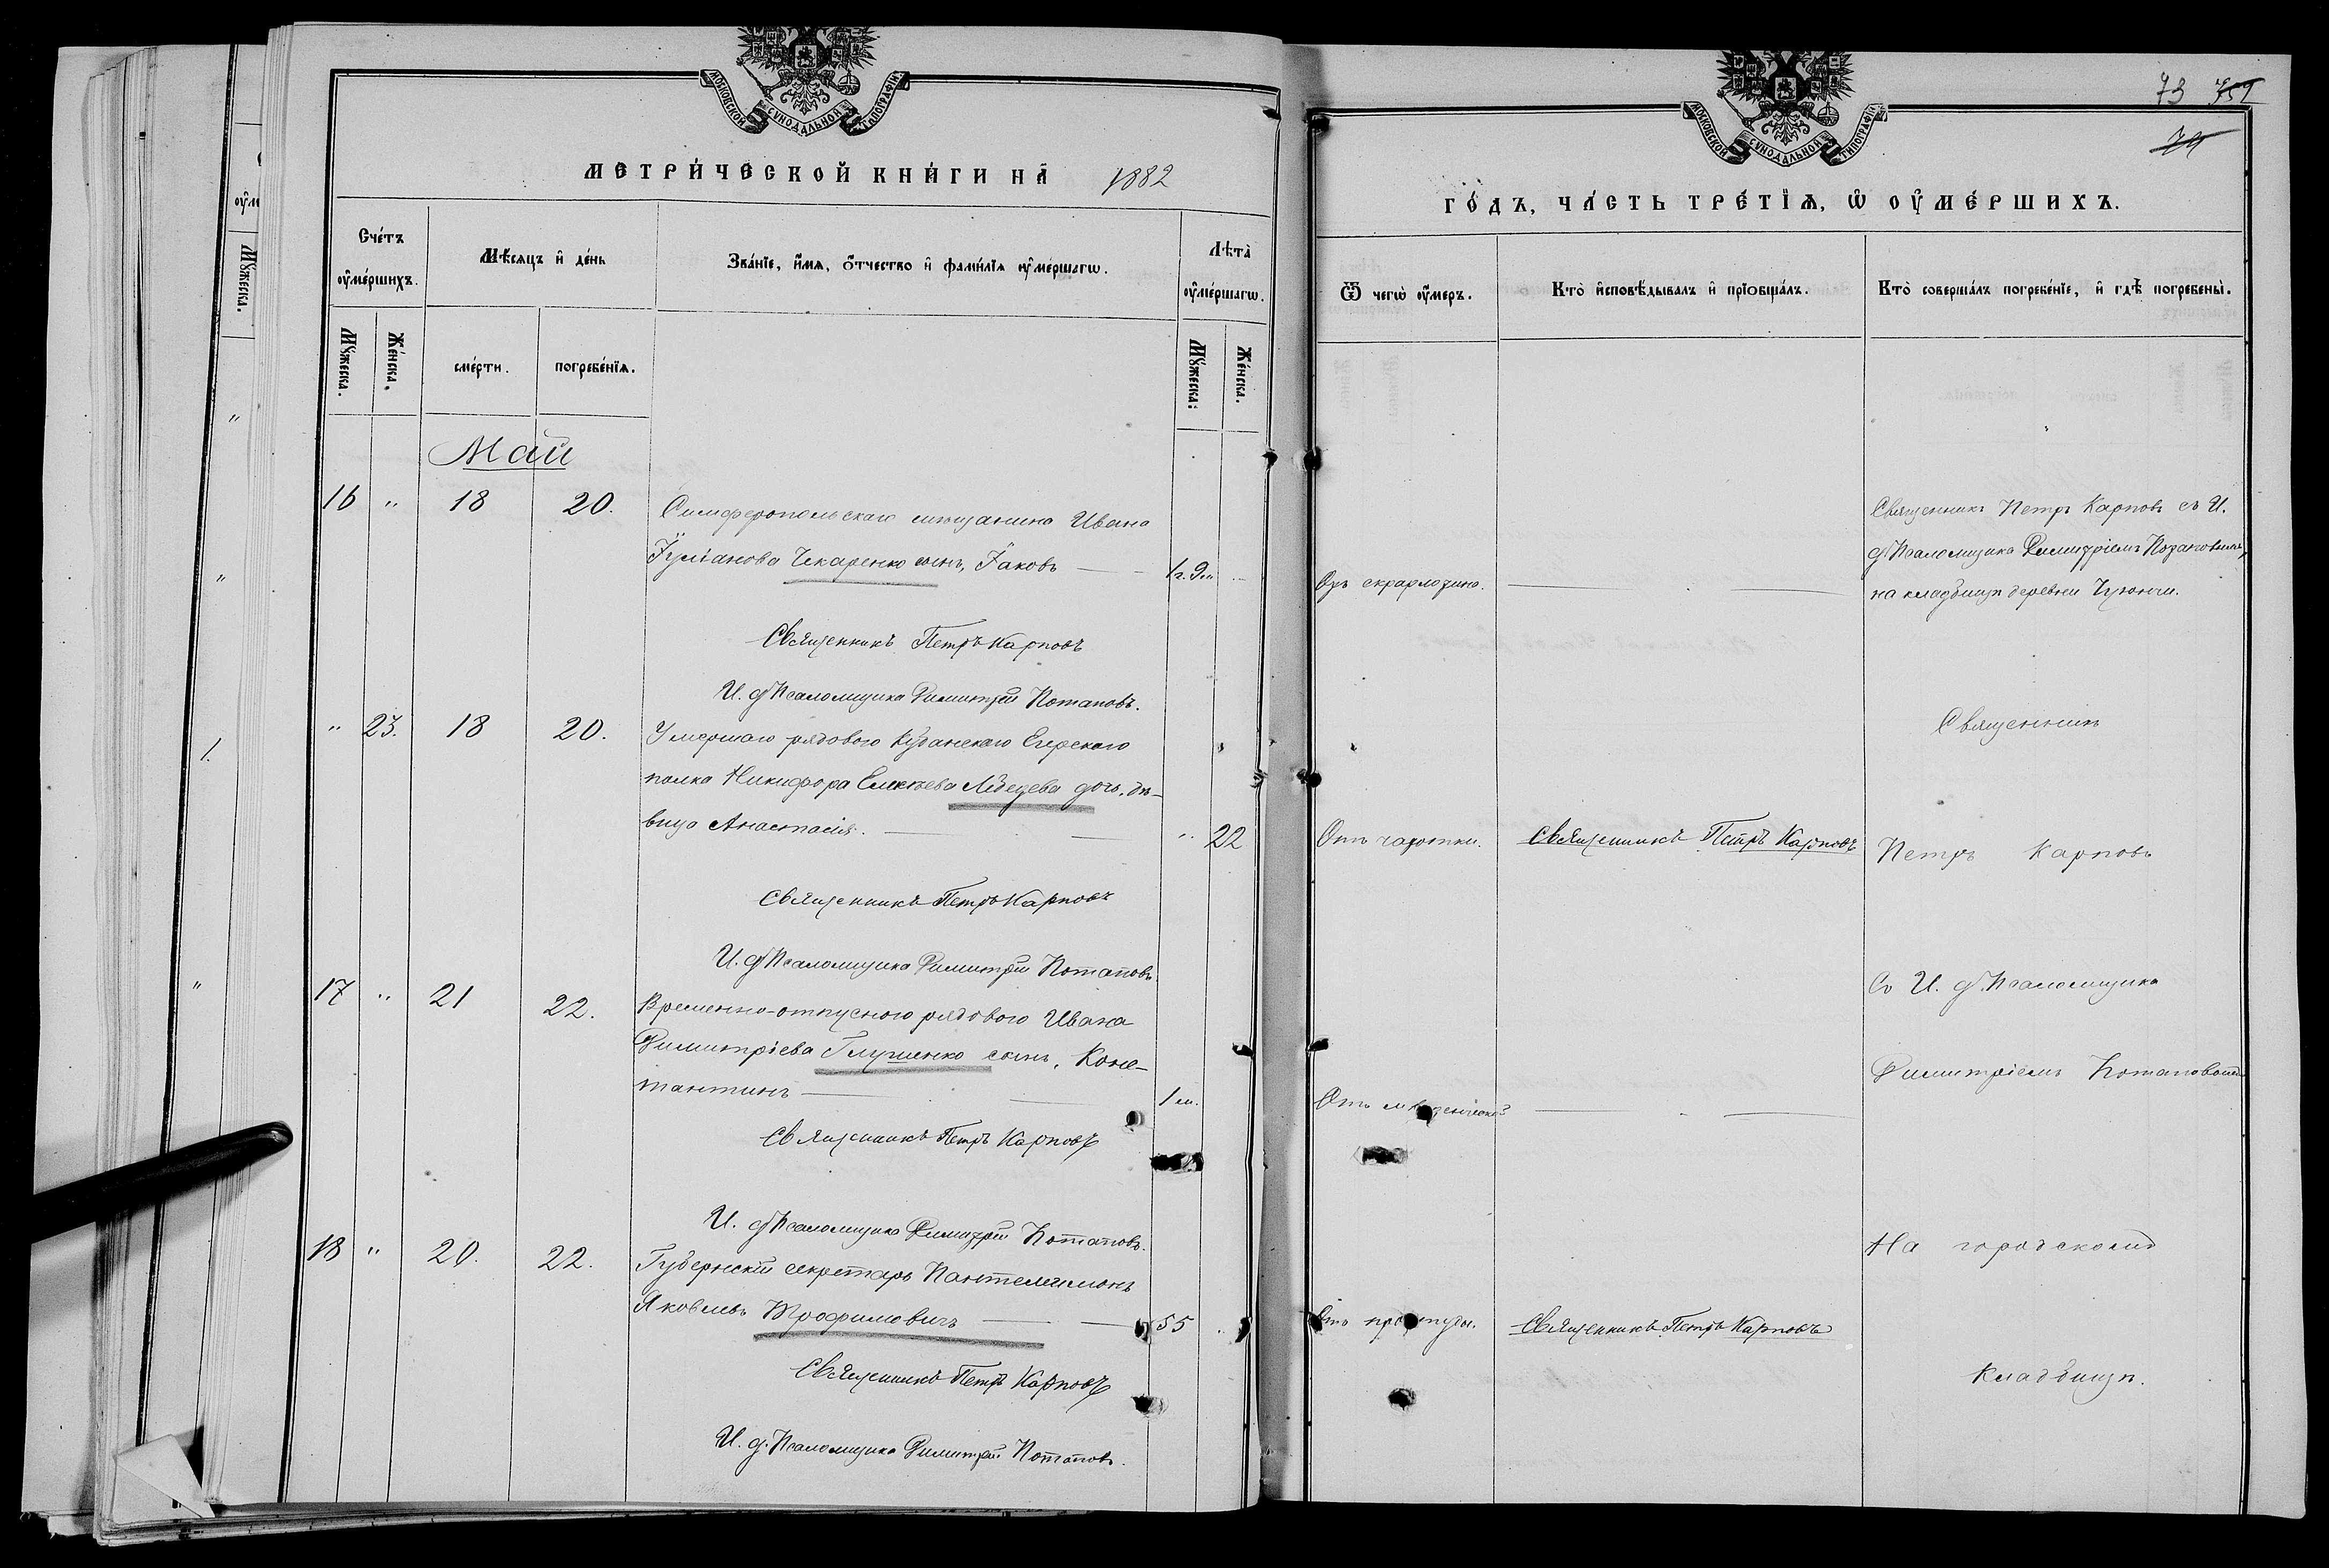 МОСКОВСКОЙ СѴНОДАЛЬНОЙ ТИПОГРАФІИ
МЕТРИ́ЧЕСКОЙ КНИ́ГИ НА̀ 1882
Сче́тъ ᲂу҆ме́ршихъ.
Мѣ́сяцъ и҆ де́нь
Зва́нїе, и҆́мя, ѻ҆́тчество и҆ фами́лїя ᲂу҆ме́ршагѡ.
Лѣта̀ ᲂу҆ме́ршагѡ.
Мꙋ́жеска.
Же́нска.
сме́рти.
погребе́нїя.
Мꙋ́жеска.
Же́нска.
Май
16 " 18 20. Симферопольскаго мѣщанина Ивана
Іуліанова Чекаренко сынъ, Іаковъ — 1 г. 9 м.
Священникъ Петръ Карповъ
И. д. Псаломщика Димитрій Потаповъ.
" 23. 18 20. Умершаго рядового Кубанскаго Егерскаго
полка Никифора Елисѣева Лебедева дочь, дѣ-
вица Анастасія. — " 22
Священникъ Петръ Карповъ
И. д. Псаломщика Димитрій Потаповъ.
17 " 21 22. Временно-отпускного рядового Ивана
Димитріева Глущенко сынъ, Конс-
тантинъ — 1 м.
Священникъ Петръ Карповъ
И. д. Псаломщика Димитрій Потаповъ.
18 " 20. 22. Губернскій секретарь Пантелеимонъ
Яковлевъ Трофимовичъ — 55
Священникъ Петръ Карповъ
И. д. Псаломщика Димитрій Потаповъ.
73 759
74
МОСКОВСКОЙ СѴНОДАЛЬНОЙ ТИПОГРАФІИ
ГО́ДЪ, ЧА́СТЬ ТРЕ́ТЇѦ, Ѡ҆ ОУ҆МЕ́РШИХЪ.
Ѿ чегѡ̀ ᲂу҆́меръ.
Кто̀ и҆сповѣ́дывалъ и҆ прїобща́лъ.
Кто̀ соверша́лъ погребе́нїе, и҆ гдѣ̀ погребены̀.
Священникъ Петръ Карповъ съ И.
д. Псаломщика Димитріемъ Потаповымъ,
Отъ скарлатина. —
на кладбищѣ деревни
Священникъ
Отъ чахотки. Священникъ Петръ Карповъ
Петръ Карповъ
Со И. д. Псаломщика
Димитріемъ Потаповымъ
Отъ —
На городскомъ
Отъ простуды. Священникъ Петръ Карповъ
кладбищѣ.